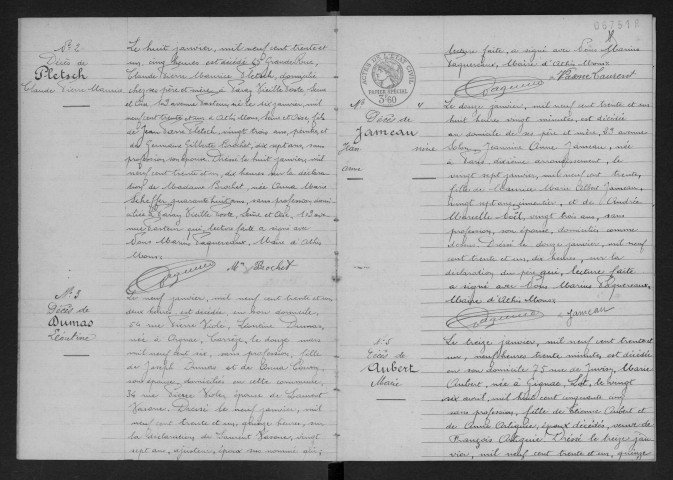 N° 2
Décès de
Pletsch
Claude Pierre Maurice
Le huit janvier, mil neuf cent trente et
un, cinq heures est décédé 25 Grande Rue,
Claude Pierre Maurice Pletsch, domicilié
chez ses père et mère à Paray Vieille Poste Seine
et Oise, 143 avenue Pasteur, né le six janvier, mil
neuf cent trente et un, à Athis Mons, Seine et Oise, fils
de Jean Pierre Pletsch, vingt trois ans, peintre, et
de Germaine Gilberte Brochet, dix sept ans, sans
profession, son épouse. Dressé le huit janvier, mil
neuf cent trente et un, dix heures sur la déclara-
tion de Madame Brochet, née Anna Marie
Scheffer, quarante huit ans, sans profession, domi-
ciliée à Paray Vieille Poste, Seine et Oise, 143 ave-
nue Pasteur qui, lecture faite a signé avec
Nous Marius Vaquereaux, Maire d'Athis
Mons.
Mme Brochet
N° 3
Décès de
Dumas
Léontine
Le neuf janvier, mil neuf cent trente et un
deux heures est décédée, en son domicile,
34 rue Pierre Viole, Léontine Dumas,
née à Orgnac, Corrèze, le douze mars
mil neuf cent six, sans profession, fille
de Joseph Dumas et de
son épouse, domiciliés en cette commune,
34 rue Pierre Viole, épouse de Laurent
Dressé le neuf janvier, mil
neuf cent trente et un, quinze heures, sur
la déclaration de Laurent vingt
sept ans, ajusteur, époux sus nommé qui,
8
lecture faite, a signé avec Nous Marius
Vaquereaux, Maire d'Athis Mons
Laurent
ACTES DE L'ETAT CIVIL
PAPIER SPECIAL
3F60
N° 4
Décès de
Jameau
Jeannine
Anne
Le douze janvier, mil neuf cent trente et un
huit heures vingt minutes, est décédée
au domicile de ses père et mère, 39 avenue
Jeannine Anne Jameau, née
à Paris, dixième arrondissement, le
vingt sept janvier, mil neuf cent trente,
fille de Maurice Marie Albert Jameau,
vingt sept ans, et de Andrée
Marcelle Noël, vingt trois ans, sans
profession, son épouse, domiciliés comme
dessus. Dressé le douze janvier, mil neuf
cent trente et un, dix heures, sur la
déclaration du père qui, lecture faite
a signé avec Nous Marius Vaquereaux,
Maire d'Athis Mons.
Jameau
N° 5
Décès de
Aubert
Marie
Le treize janvier, mil neuf cent trente et
un, neuf heures trente minutes, est décédée
en son domicile 75 rue de Juvisy, Marie
Aubert, née à Gignac, Lot, le vingt
six avril, mil huit cent cinquante cinq
sans profession, fille de Etienne Aubert et
de Anne époux décédés, veuve de
François Dressé le treize jan-
vier, mil neuf cent trente et un, quinze